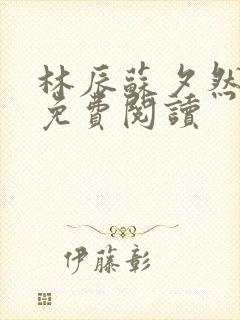 林辰蘇夕然
免費閱讀
伊藤彰